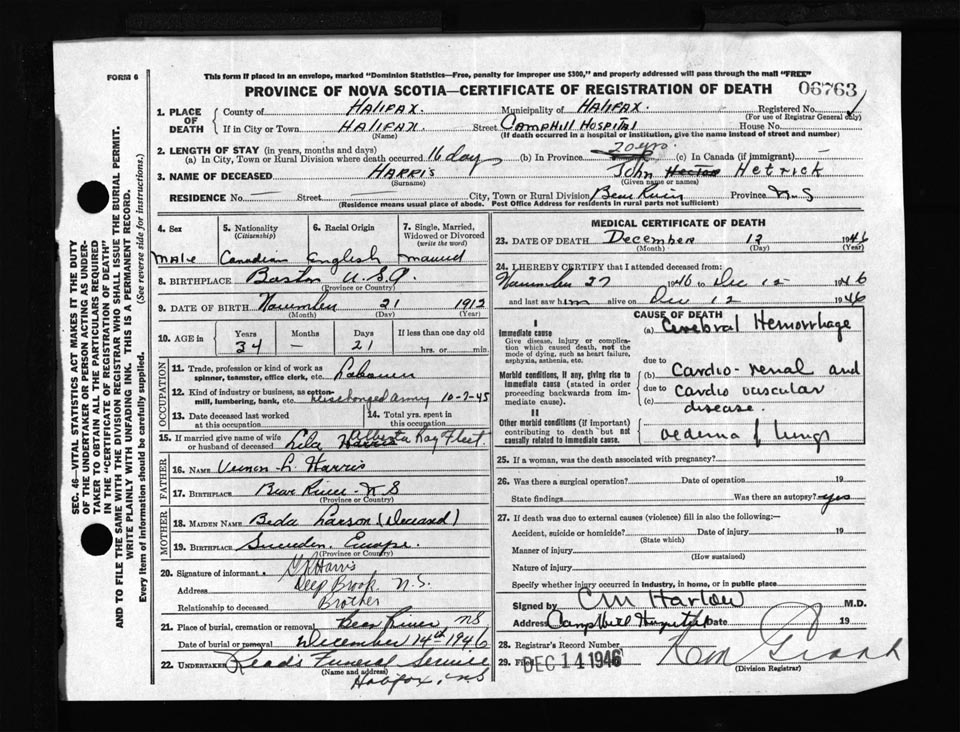 FORM 6
This form if placed in an envelope, marked "Dominion Statistics—Free, penalty for improper use $300," and properly addressed will pass through the mail "FREE"
PROVINCE OF NOVA SCOTIA—CERTIFICATE OF REGISTRATION OF DEATH
06763
1. PLACE OF DEATH
County of HALIFAX. Municipality of HALIFAX. Registered No.
(For use of Registrar General only)
If in City or Town HALIFAX Street CAMPHILL HOSPITAL House No.
(Name) (If death occurred in a hospital or institution, give the name instead of street and number)
2. LENGTH OF STAY (in years, months and days)
20 yrs.
(a) In City, Town or Rural Division where death occurred 16 days (b) In Province (c) In Canada (if immigrant) —
3. NAME OF DECEASED HARRIS John Hector Hetrick
(Surname) (Given name or names)
RESIDENCE No. — Street City, Town or Rural Division Bear River Province N.S
(Residence means usual place of abode. Post Office Address for residents in rural parts not sufficient)
4. Sex
5. Nationality (Citizenship)
6. Racial Origin
7. Single, Married, Widowed or Divorced (write the word)
Male Canadian English married
8. BIRTHPLACE Boston U.S.A.
(Province or Country)
9. DATE OF BIRTH November 21 1912
(Month) (Day) (Year)
10. AGE in Years Months Days If less than one day old
34 — 21 hrs. or min.
OCCUPATION
11. Trade, profession or kind of work as spinner, teamster, office clerk, etc. Labourer
12. Kind of industry or business, as cotton-mill, lumbering, bank, etc. Discharged army 10-7-45
13. Date deceased last worked at this occupation
14. Total yrs. spent in this occupation
15. If married give name of wife or husband of deceased Lila Harris Alberta Kay Fleet.
FATHER
16. NAME Vernon L. Harris
17. BIRTHPLACE Bear River - N S
(Province or Country)
MOTHER
18. MAIDEN NAME Beda Larson (Deceased)
19. BIRTHPLACE Sweeden, Europe.
(Province or Country)
20. Signature of informant Harris
Address Deep Brook N.S.
Relationship to deceased Brother
21. Place of burial, cremation or removal Bear River NS
Date of burial or removal December 14th - 1946
22. UNDERTAKER Funeral Service
(Name and address)
Halifax, N.S
MEDICAL CERTIFICATE OF DEATH
23. DATE OF DEATH December 12 1946
(Month) (Day) (Year)
24. I HEREBY CERTIFY that I attended deceased from:
November 27 1946 to Dec 12 — 1946
and last saw him alive on Dec 12 1946
CAUSE OF DEATH
I
Immediate cause
(a) Cerebral Hemorrhage
Give disease, injury or complication which caused death, not the mode of dying, such as heart failure, asphyxia, asthenia, etc.
due to
Morbid conditions, if any, giving rise to immediate cause (stated in order proceeding backwards from immediate cause).
(b) Cardio-renal and
due to
(c) Cardio vascular disease.
II
Other morbid conditions (if important) contributing to death but not causally related to immediate cause.
oedema of lungs
25. If a woman, was the death associated with pregnancy?
26. Was there a surgical operation? Date of operation 19
State findings Was there an autopsy? yes
27. If death was due to external causes (violence) fill in also the following:—
Accident, suicide or homicide? Date of injury 19
(State which)
Manner of injury
(How sustained)
Nature of injury
Specify whether injury occurred in industry, in home, or in public place
Signed by CM Harlow M.D.
Address Camp Hill Hospital Date 19
28. Registrar's Record Number
29. DEC 14 1946
(Division Registrar)
SEC. 46—VITAL STATISTICS ACT MAKES IT THE DUTY OF THE UNDERTAKER OR PERSON ACTING AS UNDERTAKER TO OBTAIN ALL THE PARTICULARS REQUIRED IN THE "CERTIFICATE OF REGISTRATION OF DEATH"
AND TO FILE THE SAME WITH THE DIVISION REGISTRAR WHO SHALL ISSUE THE BURIAL PERMIT.
WRITE PLAINLY WITH UNFADING INK. THIS IS A PERMANENT RECORD.
Every item of information should be carefully supplied. (See reverse side for instructions.)